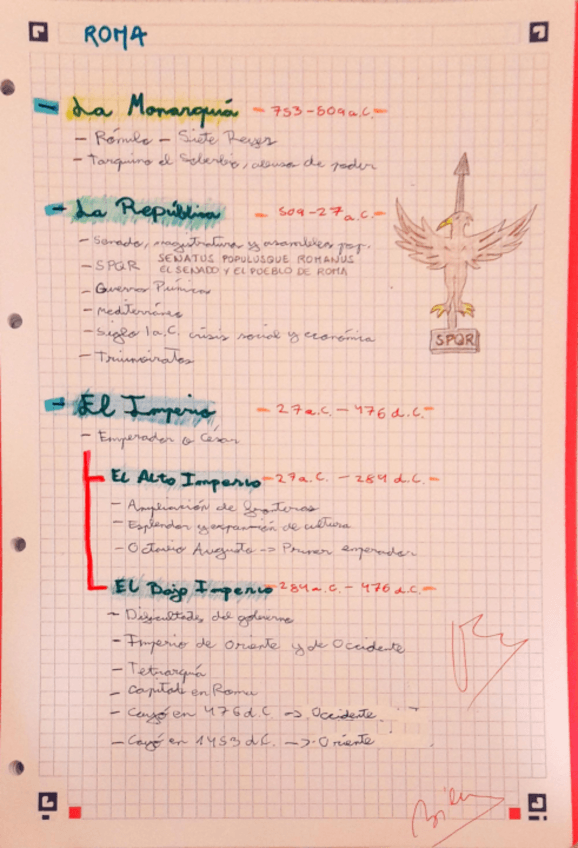 ROMA
- La Monarquía - 753-509 a.C. -
- Rómulo - Siete Reyes
- Tarquino el Soberbio, abuso de poder
- La República - 509-27 a.C. -
- Senado, magistratura y asambleas pop.
- SPQR SENATUS POPULUSQUE ROMANUS
EL SENADO Y EL PUEBLO DE ROMA
- Guerras Púnicas
- Mediterráneo
- Siglo I a.C. crisis social y económica
- Triunviratos
SPQR
- El Imperio - 27 a.C. - 476 d.C. -
- Emperador o César
El Alto Imperio - 27 a.C. - 284 d.C. -
- Ampliación de fronteras
- Esplendor y expansión de cultura
- Octavio Augusto -> Primer emperador
El Bajo Imperio - 284 a.C. - 476 d.C. -
- Dificultades del gobierno
- Imperio de Oriente y de Occidente
- Tetrarquía
- Capital en Roma
- Cayó en 476 d.C. -> Occidente
- Cayó en 1453 d.C. -> Oriente
Bien